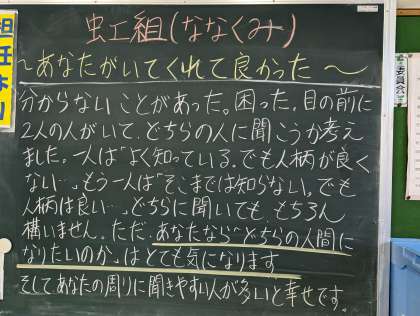 虹組(ななくみ)
～あなたがいてくれて良かった～
分からないことがあった。困った。目の前に
2人の人がいて、どちらの人に聞こうか考え
ました。一人は「よく知っている。でも人柄が良く
ない…」もう一人は「そこまでは知らない。でも
人柄は良い…」どちらに聞いても、もちろん
構いません。ただ、あなたなら“どちらの人間に
なりたいのか”はとても気になります
そしてあなたの周りに聞きやすい人が多いと幸せです。
担任
委員会